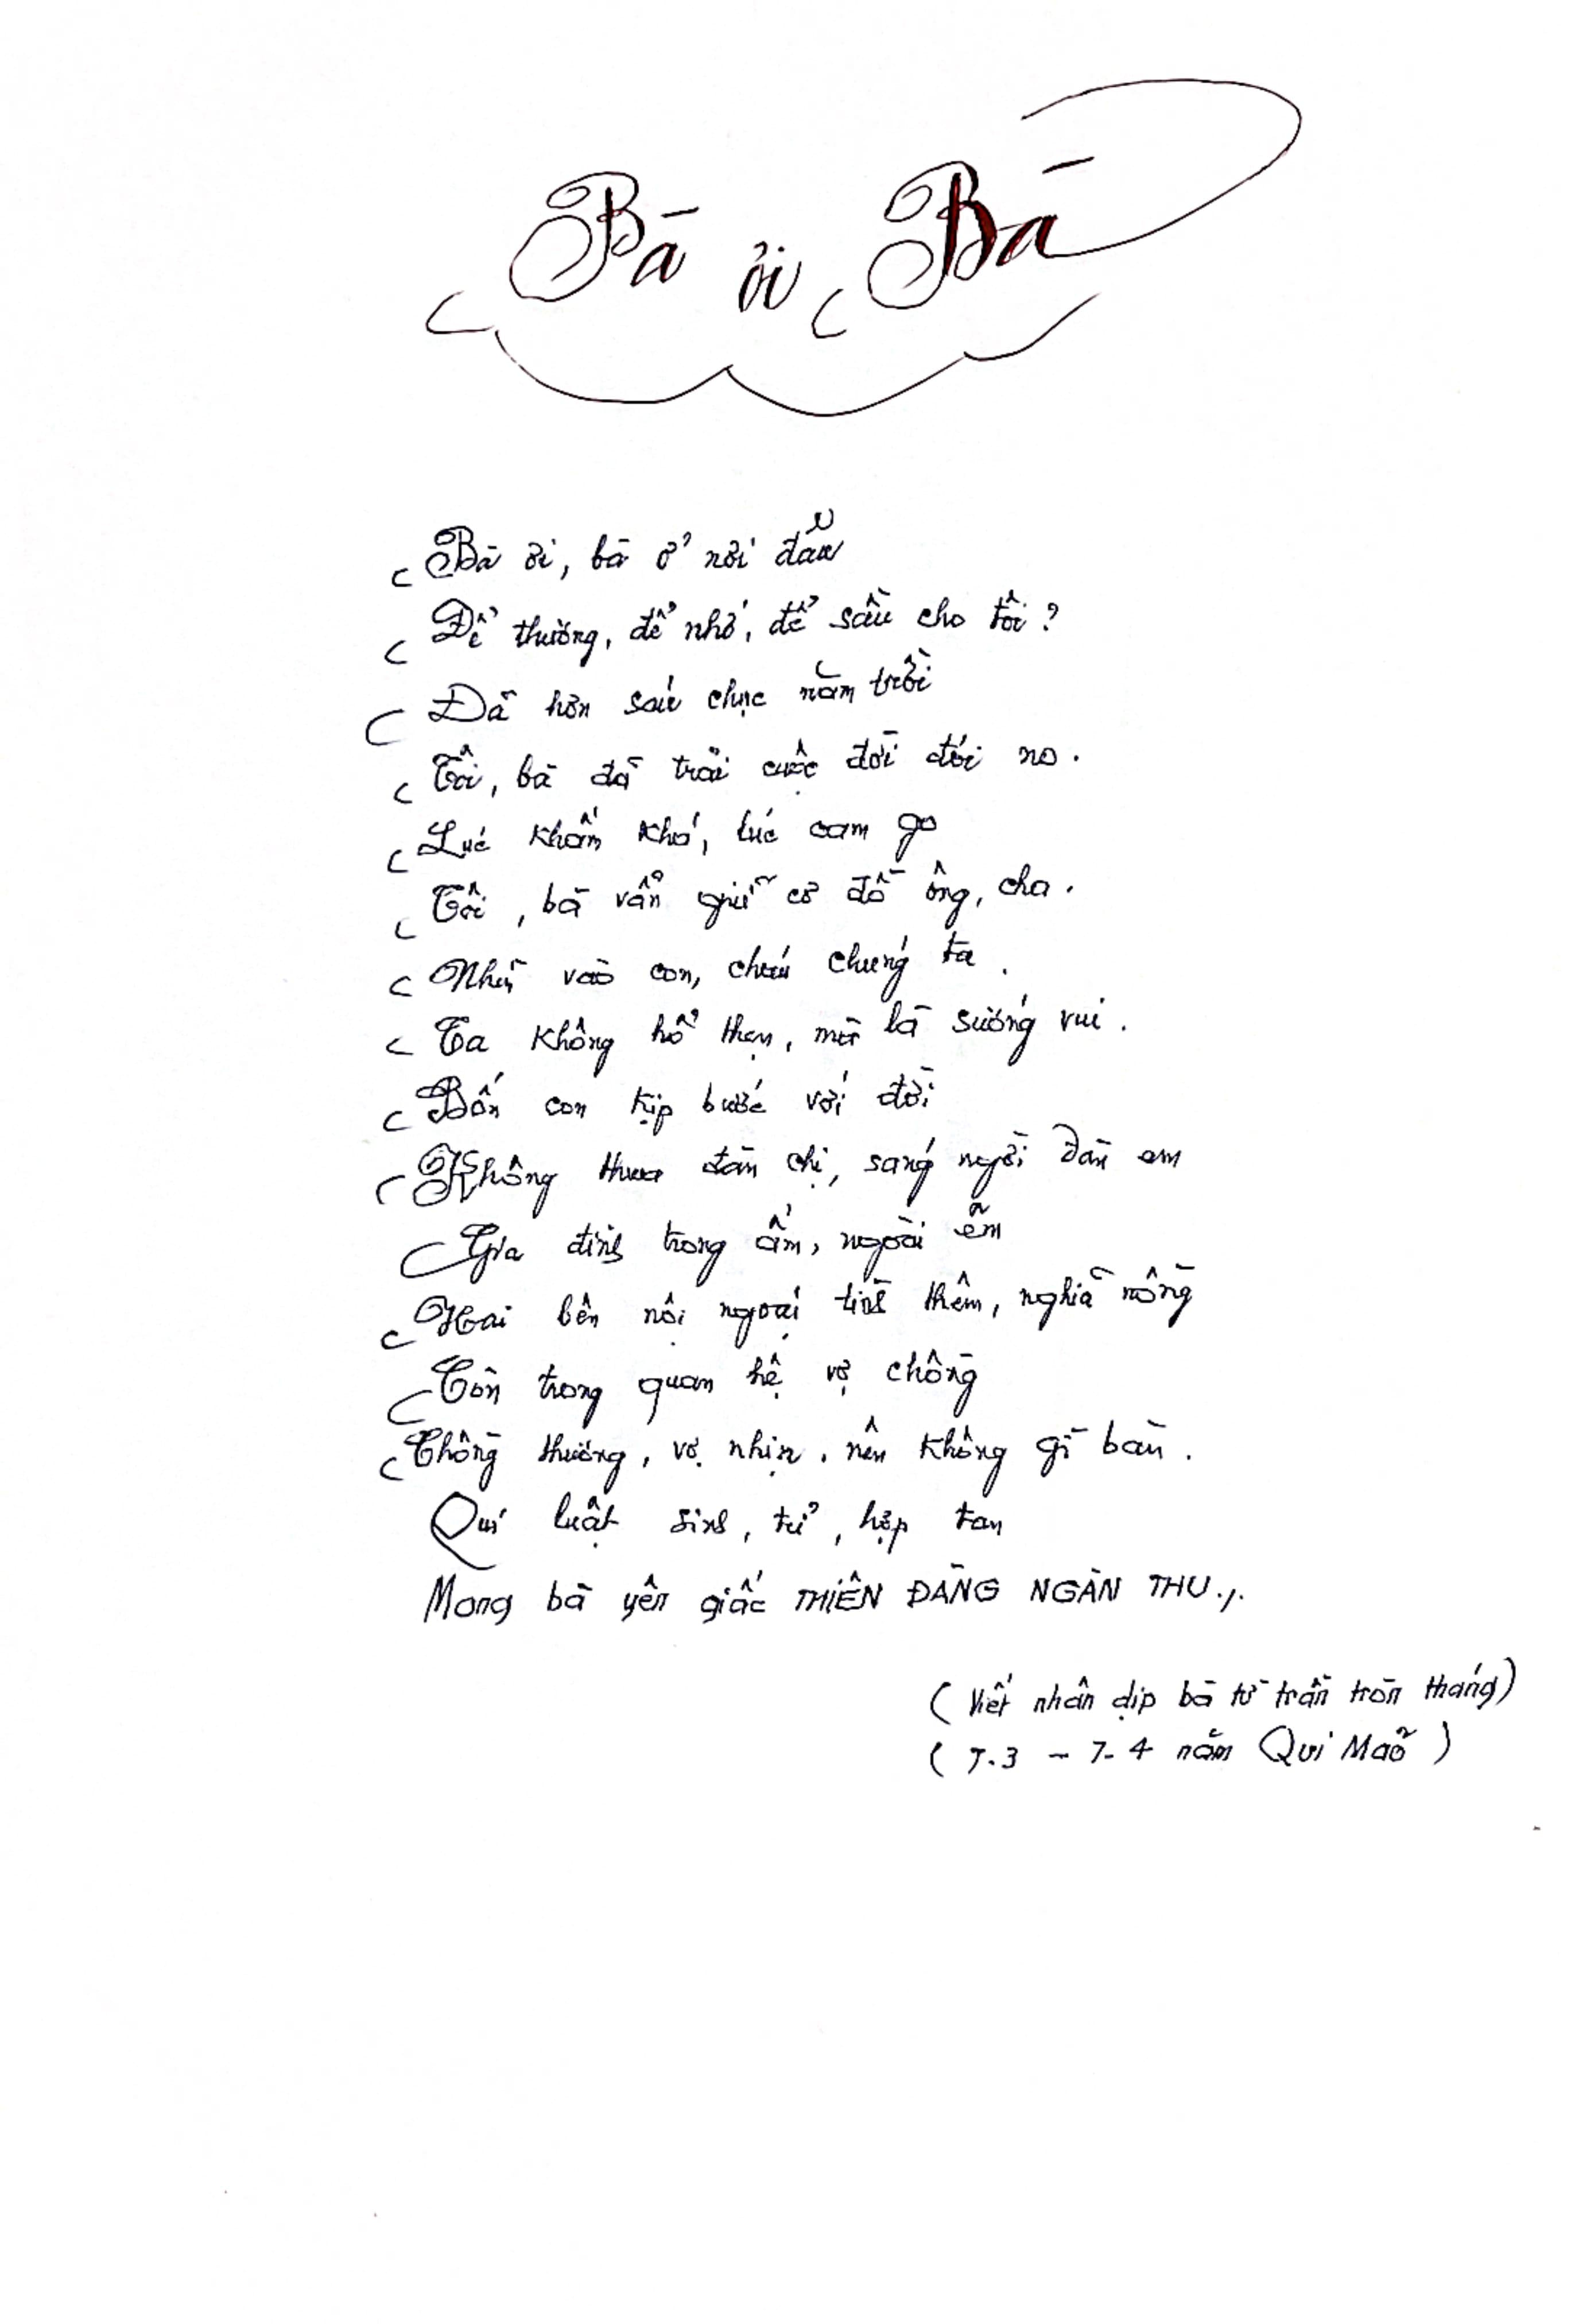 Bà ơi Bà
Bà ơi, bà ở nơi đâu
Để thương, để nhớ, để sầu cho tôi?
Đã hơn sáu chục năm trời
Tôi, bà đã trải cuộc đời đói no.
Lúc khốn khó, lúc cam go
Tôi, bà vẫn giữ cơ đồ ông, cha.
Nhìn vào con, cháu chúng ta.
Ta không hổ thẹn, mà là sướng vui.
Bốn con kịp bước với đời
Không thua đàn chị, sáng ngời đàn em
Gia đình trong ấm, ngoài êm
Hai bên nội ngoại tình thêm, nghĩa nồng
Còn trong quan hệ vợ chồng
Chồng thương, vợ nhịn, nên không gì bàn.
Qui luật sinh, tử, hợp tan
Mong bà yên giấc THIÊN ĐÀNG NGÀN THU./.
(Viết nhân dịp bà từ trần tròn tháng)
(7.3 - 7-4 năm Quí Mão)